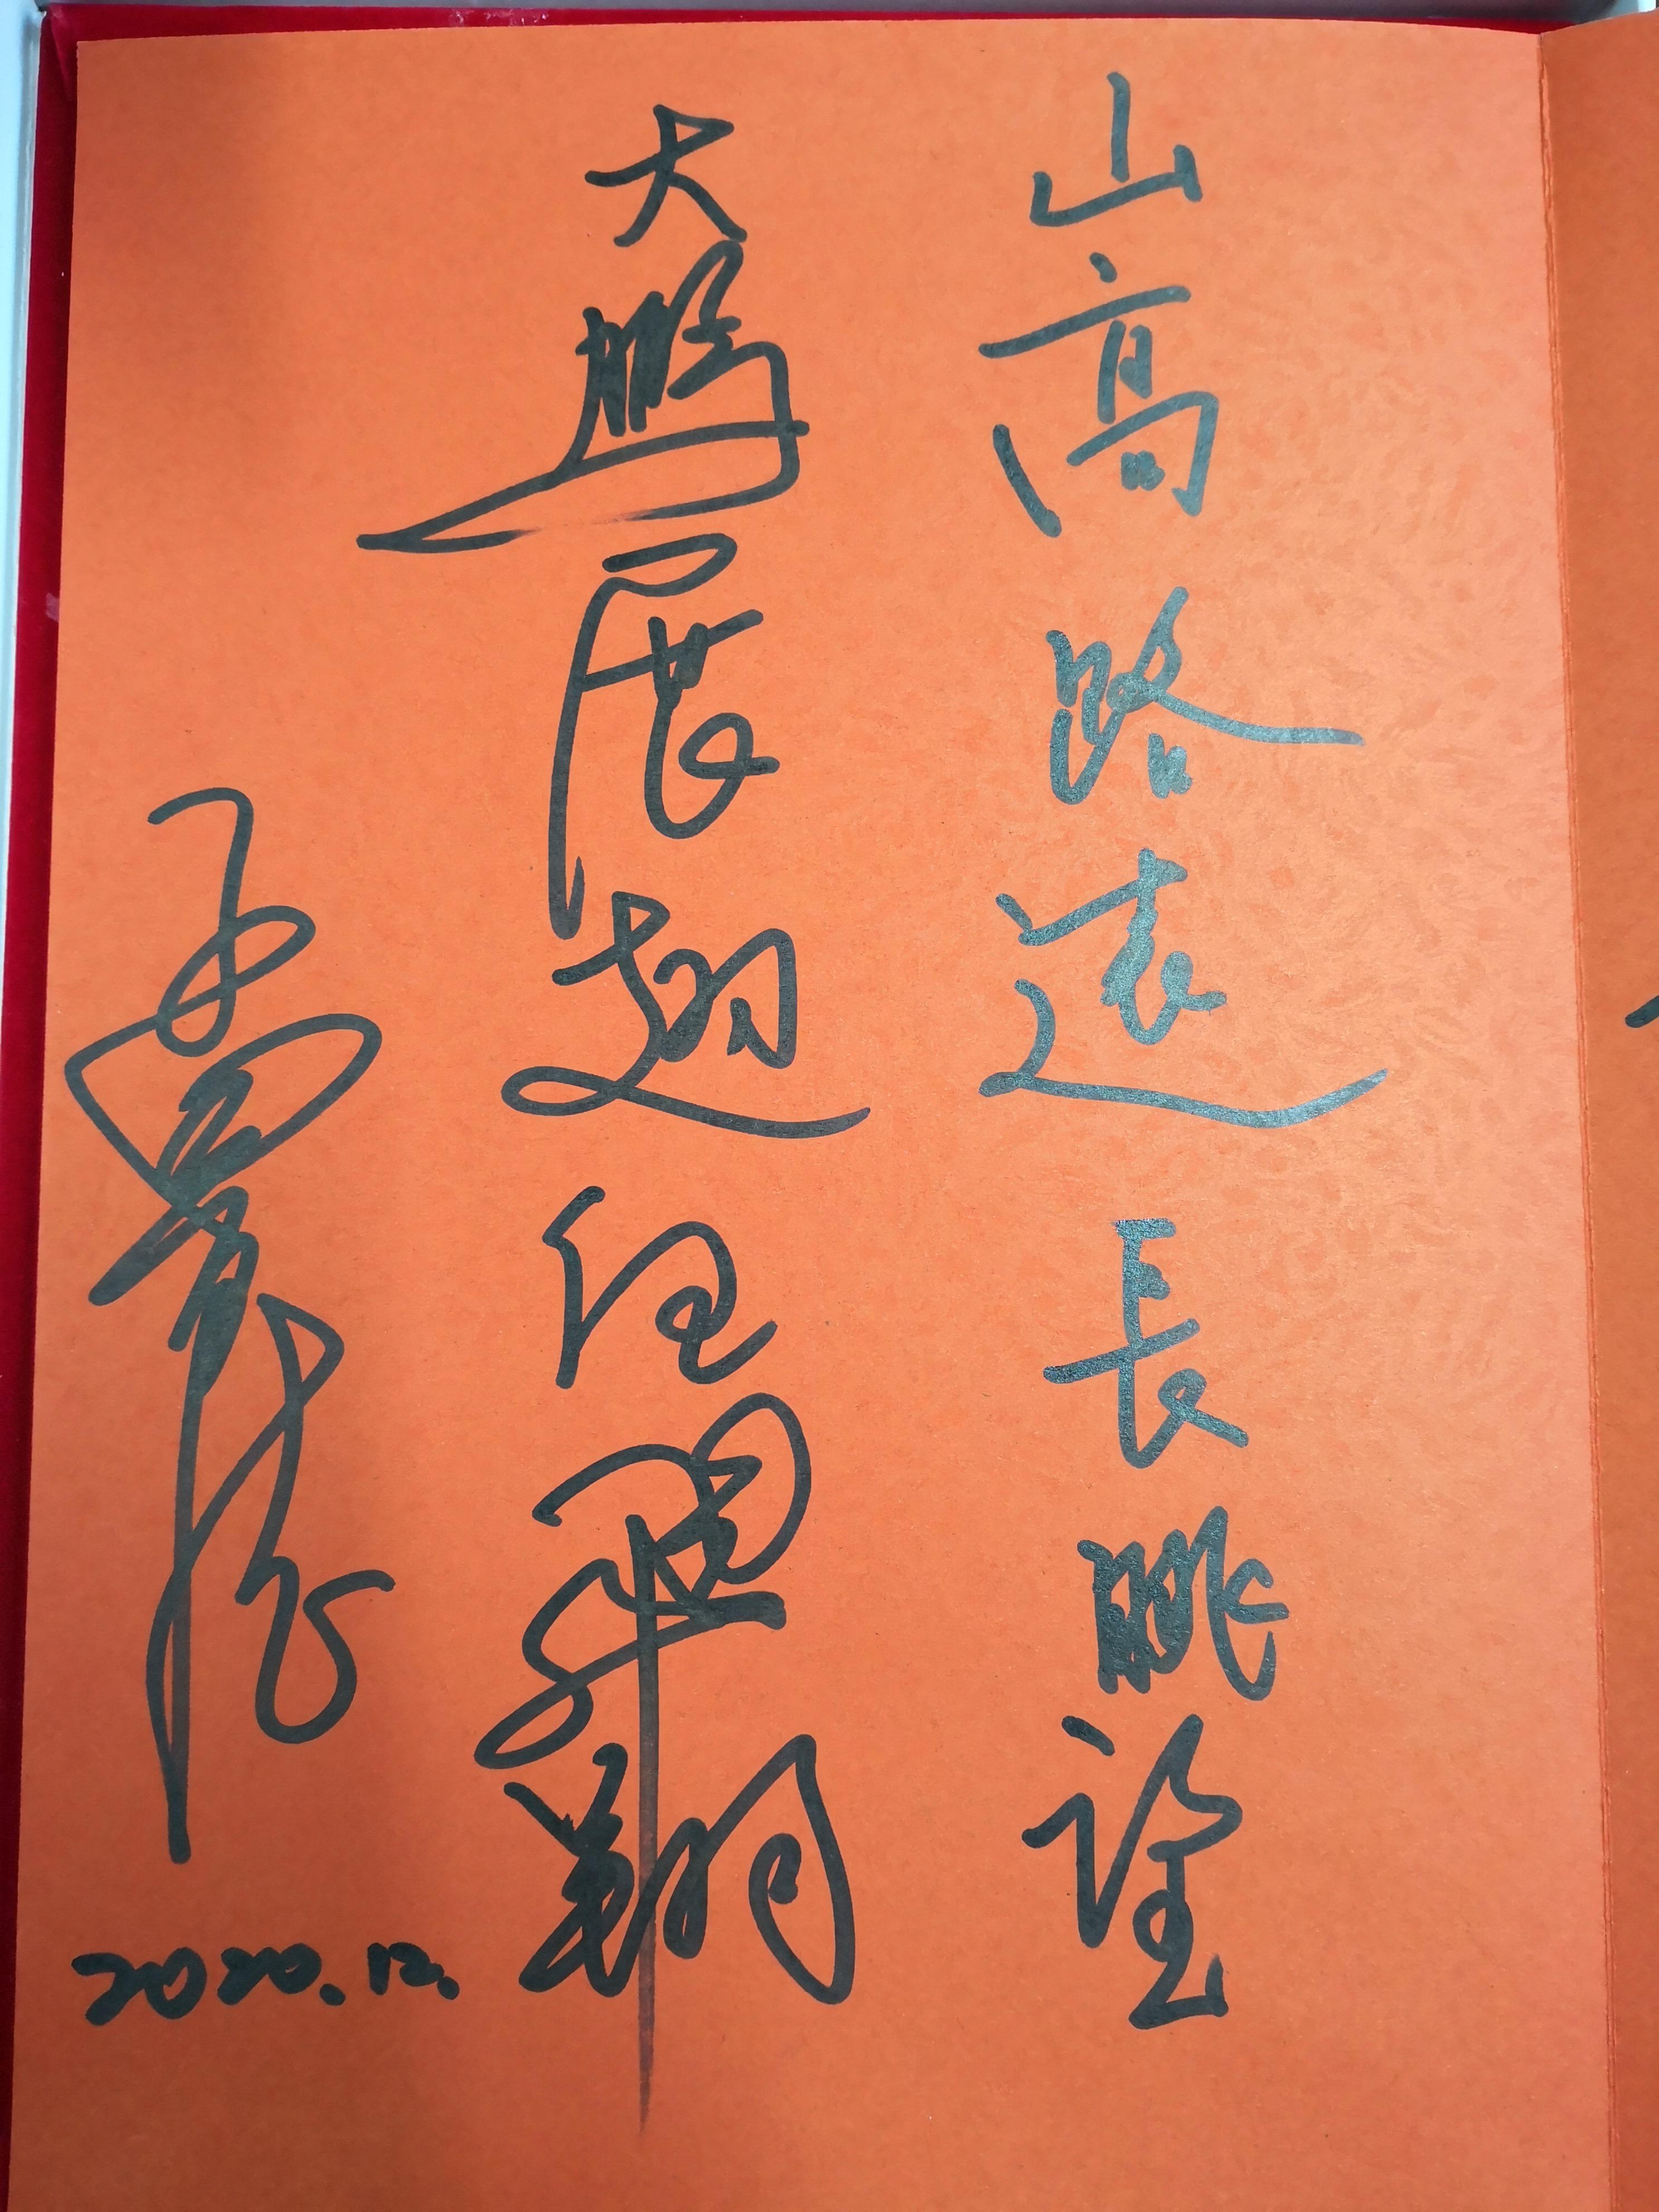 山高路遠長眺望
大鵬展翅任飛翔
2020.12.